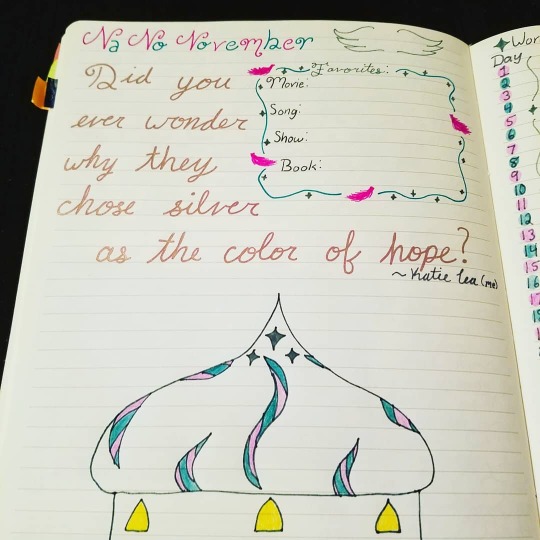 Na No November
Did you
ever wonder
why they
chose silver
as the color of hope?
~ Katie Lea (me)
Favorites:
Movie:
Song:
Show:
Book:
Wor
Day
1
2
3
4
5
6
7
8
9
10
11
12
13
14
15
16
17
18